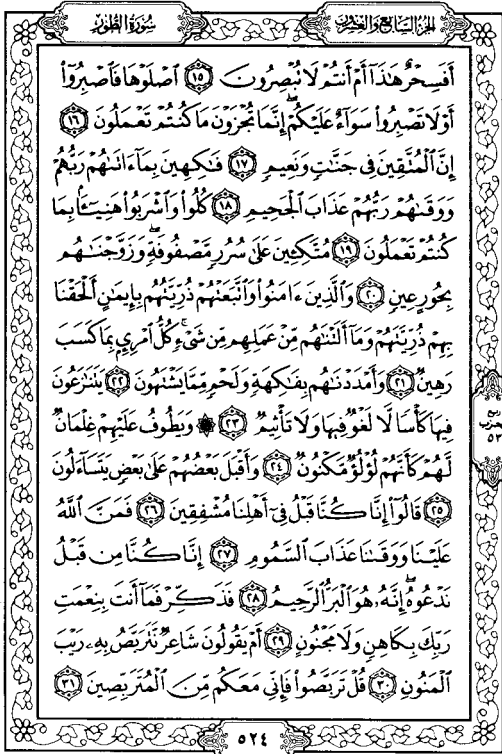 سُورَةُ الطُّورِ
الجُزْءُ السَّابِعُ وَالعِشْرُونَ
أَفَسِحْرٌ هَٰذَا أَمْ أَنتُمْ لَا تُبْصِرُونَ ١٥ ٱصْلَوْهَا فَٱصْبِرُوٓا۟
أَوْ لَا تَصْبِرُوا۟ سَوَآءٌ عَلَيْكُمْ ۖ إِنَّمَا تُجْزَوْنَ مَا كُنتُمْ تَعْمَلُونَ ١٦
إِنَّ ٱلْمُتَّقِينَ فِى جَنَّٰتٍ وَنَعِيمٍ ١٧ فَٰكِهِينَ بِمَآ ءَاتَىٰهُمْ رَبُّهُمْ
وَوَقَىٰهُمْ رَبُّهُمْ عَذَابَ ٱلْجَحِيمِ ١٨ كُلُوا۟ وَٱشْرَبُوا۟ هَنِيٓـًٔۢا بِمَا
كُنتُمْ تَعْمَلُونَ ١٩ مُتَّكِـِٔينَ عَلَىٰ سُرُرٍ مَّصْفُوفَةٍ ۖ وَزَوَّجْنَٰهُم
بِحُورٍ عِينٍ ٢٠ وَٱلَّذِينَ ءَامَنُوا۟ وَٱتَّبَعَتْهُمْ ذُرِّيَّتُهُم بِإِيمَٰنٍ أَلْحَقْنَا
بِهِمْ ذُرِّيَّتَهُمْ وَمَآ أَلَتْنَٰهُم مِّنْ عَمَلِهِم مِّن شَىْءٍ ۚ كُلُّ ٱمْرِئٍۭ بِمَا كَسَبَ
رَهِينٌ ٢١ وَأَمْدَدْنَٰهُم بِفَٰكِهَةٍ وَلَحْمٍ مِّمَّا يَشْتَهُونَ ٢٢ يَتَنَٰزَعُونَ
فِيهَا كَأْسًا لَّا لَغْوٌ فِيهَا وَلَا تَأْثِيمٌ ٢٣ ۞ وَيَطُوفُ عَلَيْهِمْ غِلْمَانٌ
لَّهُمْ كَأَنَّهُمْ لُؤْلُؤٌ مَّكْنُونٌ ٢٤ وَأَقْبَلَ بَعْضُهُمْ عَلَىٰ بَعْضٍ يَتَسَآءَلُونَ
٢٥ قَالُوٓا۟ إِنَّا كُنَّا قَبْلُ فِىٓ أَهْلِنَا مُشْفِقِينَ ٢٦ فَمَنَّ ٱللَّهُ
عَلَيْنَا وَوَقَىٰنَا عَذَابَ ٱلسَّمُومِ ٢٧ إِنَّا كُنَّا مِن قَبْلُ
نَدْعُوهُ ۖ إِنَّهُۥ هُوَ ٱلْبَرُّ ٱلرَّحِيمُ ٢٨ فَذَكِّرْ فَمَآ أَنتَ بِنِعْمَتِ
رَبِّكَ بِكَاهِنٍ وَلَا مَجْنُونٍ ٢٩ أَمْ يَقُولُونَ شَاعِرٌ نَّتَرَبَّصُ بِهِۦ رَيْبَ
ٱلْمَنُونِ ٣٠ قُلْ تَرَبَّصُوا۟ فَإِنِّى مَعَكُم مِّنَ ٱلْمُتَرَبِّصِينَ ٣١
ربع
الحزب
٥٣
٥٢٤